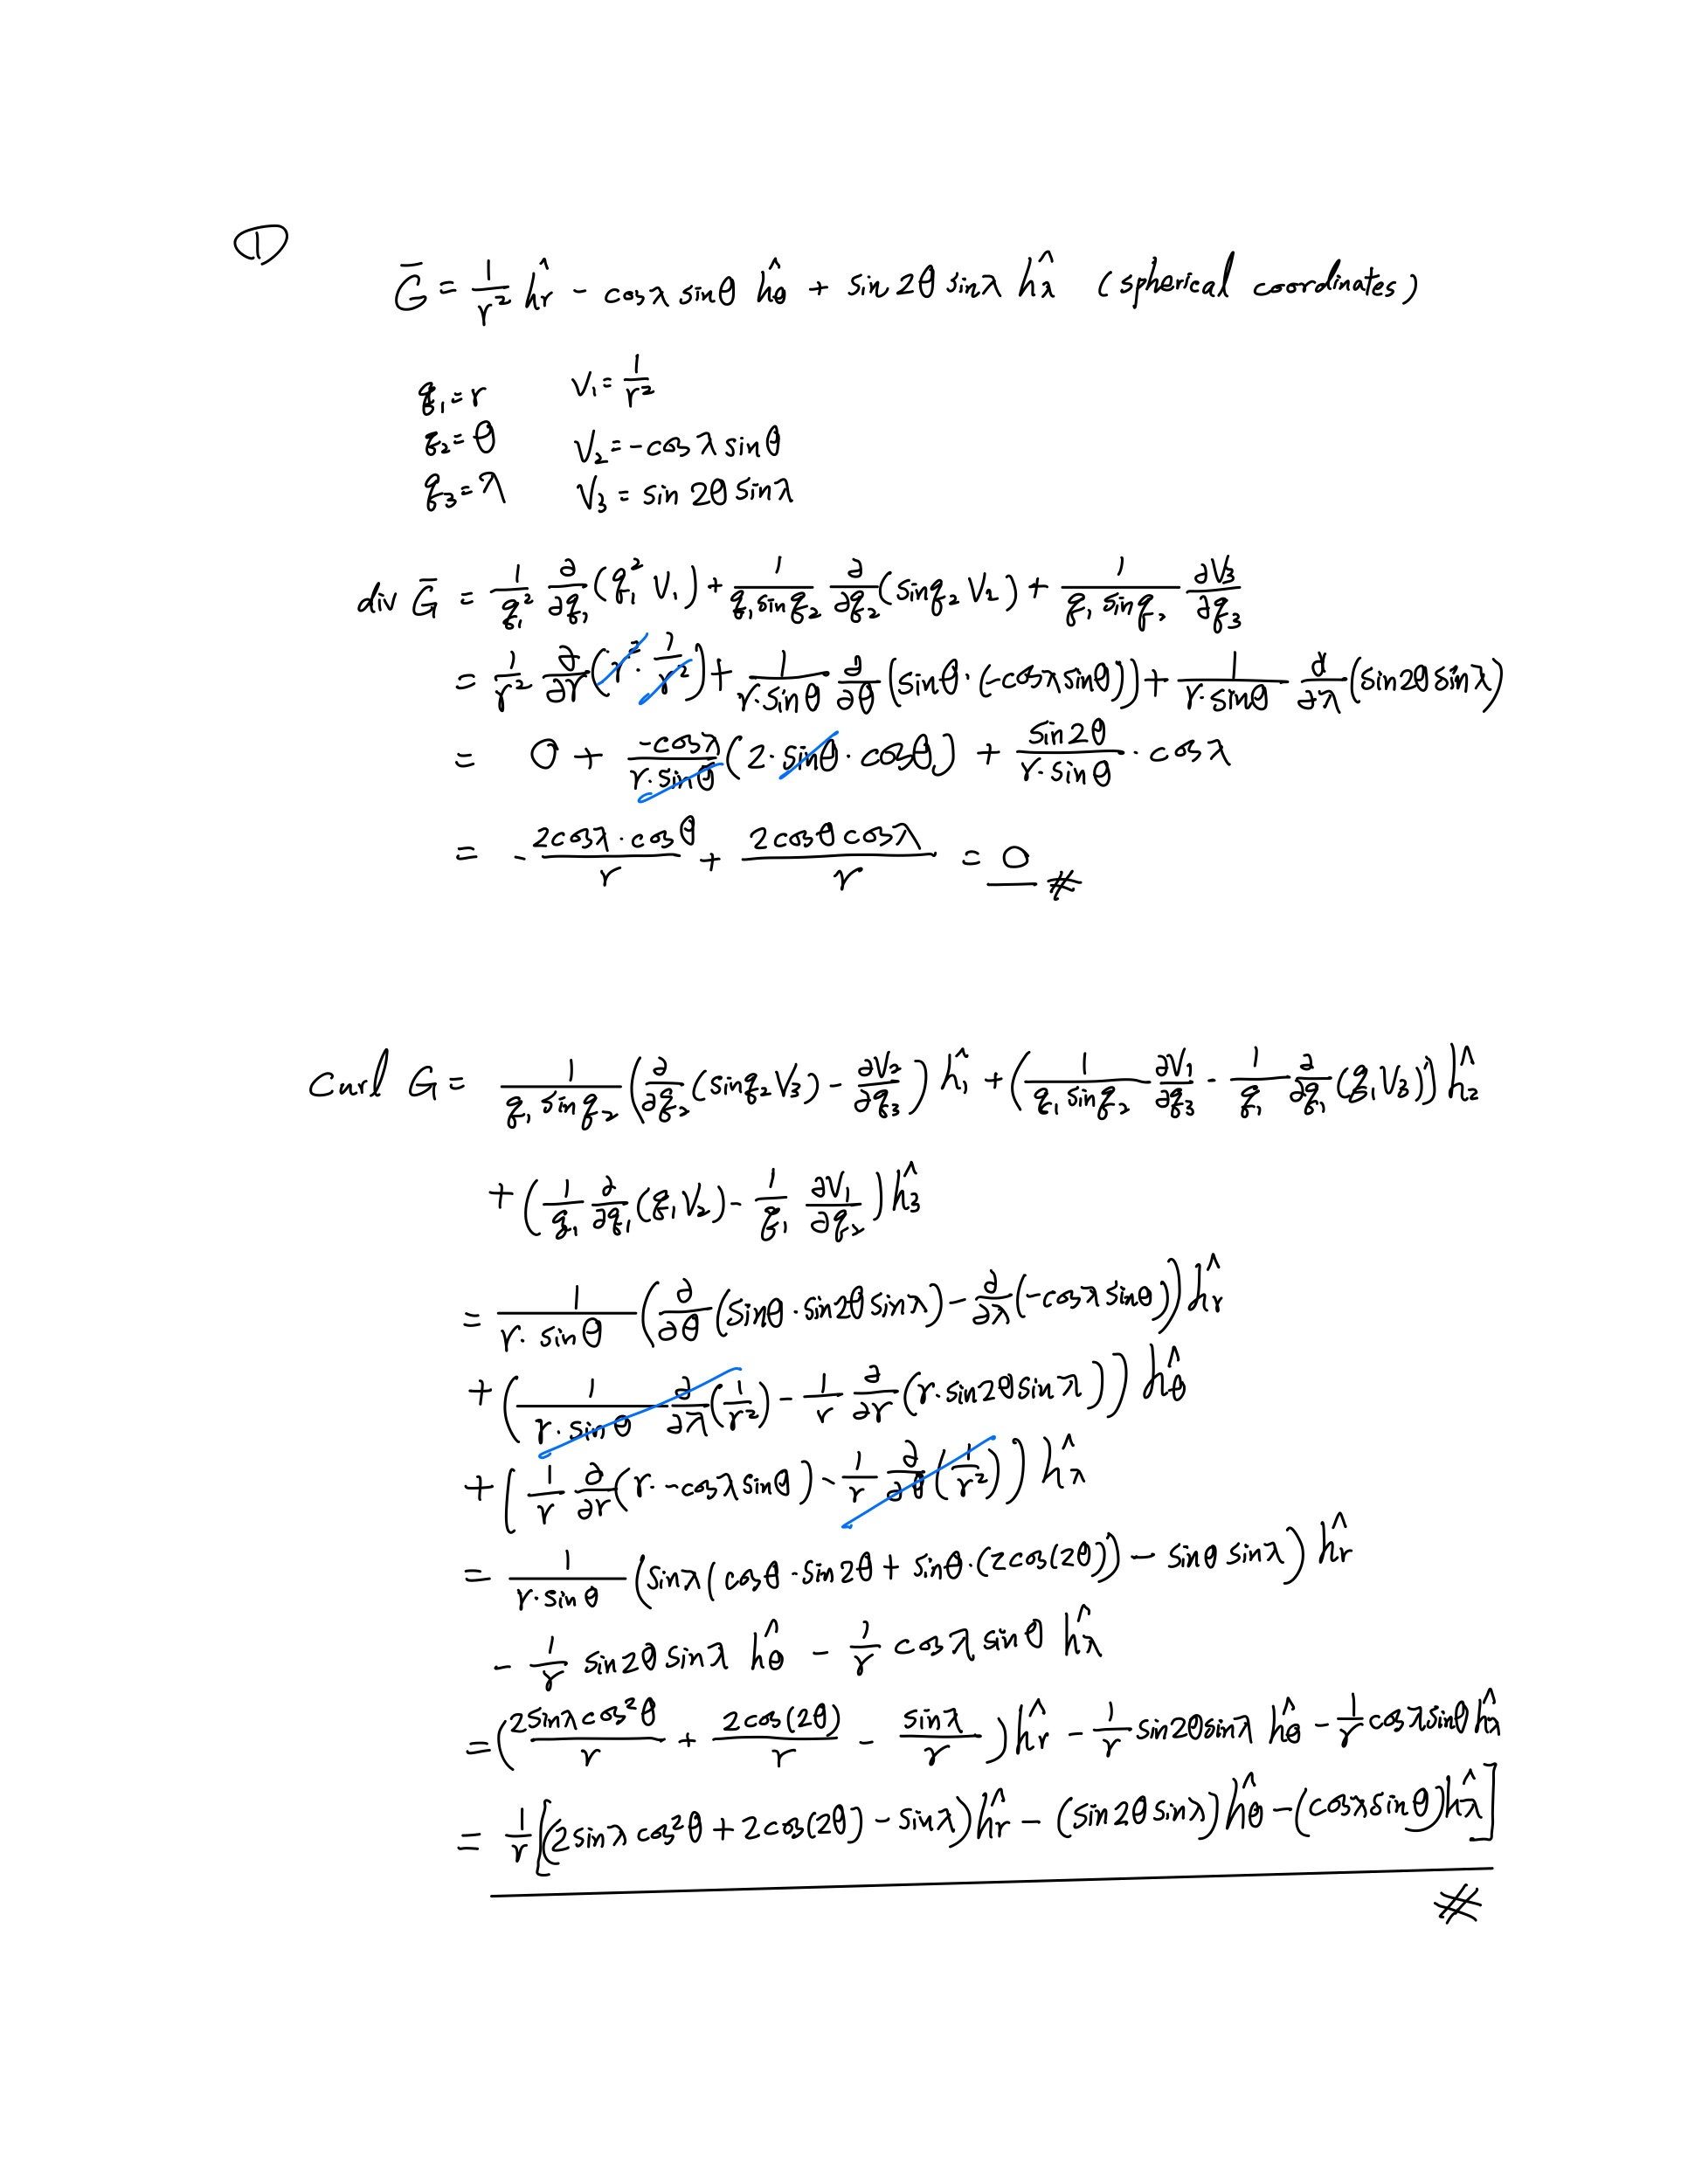 ①
G̅ = 1/r² ĥr - cosλ sinθ ĥθ + sin2θ sinλ ĥλ (spherical coordinates)
q₁=r V₁=1/r²
q₂=θ V₂=-cosλ sinθ
q₃=λ V₃=sin2θ sinλ
div G̅ = 1/q₁² ∂/∂q₁(q₁² V₁) + 1/(q₁ sinq₂) ∂/∂q₂(sinq₂ V₂) + 1/(q₁ sinq₂) ∂V₃/∂q₃
= 1/r² ∂/∂r(r²·1/r²) + 1/(r·sinθ) ∂/∂θ(sinθ·(-cosλsinθ)) + 1/(r·sinθ) ∂/∂λ(sin2θ sinλ)
= 0 + -cosλ/(r·sinθ)(2·sinθ·cosθ) + sin2θ/(r·sinθ)·cosλ
= - 2cosλ·cosθ/r + 2cosθcosλ/r = 0 #
Curl G = 1/(q₁ sinq₂)(∂/∂q₂(sinq₂V₃) - ∂V₂/∂q₃) ĥ₁ + (1/(q₁ sinq₂) ∂V₁/∂q₃ - 1/q₁ ∂/∂q₁(q₁V₃)) ĥ₂
+ (1/q₁ ∂/∂q₁(q₁V₂) - 1/q₁ ∂V₁/∂q₂) ĥ₃
= 1/(r·sinθ)(∂/∂θ(sinθ·sin2θsinλ) - ∂/∂λ(-cosλsinθ)) ĥr
+ (1/(r·sinθ) ∂/∂λ(1/r²) - 1/r ∂/∂r(r·sin2θsinλ)) ĥθ
+ (1/r ∂/∂r(r·-cosλsinθ) - 1/r ∂/∂θ(1/r²)) ĥλ
= 1/(r·sinθ)(sinλ(cosθ·sin2θ + sinθ·(2cos(2θ)) - sinθ sinλ) ĥr
- 1/r sin2θ sinλ ĥθ - 1/r cosλ sinθ ĥλ
= (2sinλcos²θ/r + 2cos(2θ)/r - sinλ/r) ĥr - 1/r sin2θsinλ ĥθ - 1/r cosλsinθ ĥλ
= 1/r[(2sinλcos²θ + 2cos(2θ) - sinλ)ĥr - (sin2θ sinλ)ĥθ - (cosλsinθ)ĥλ]
#